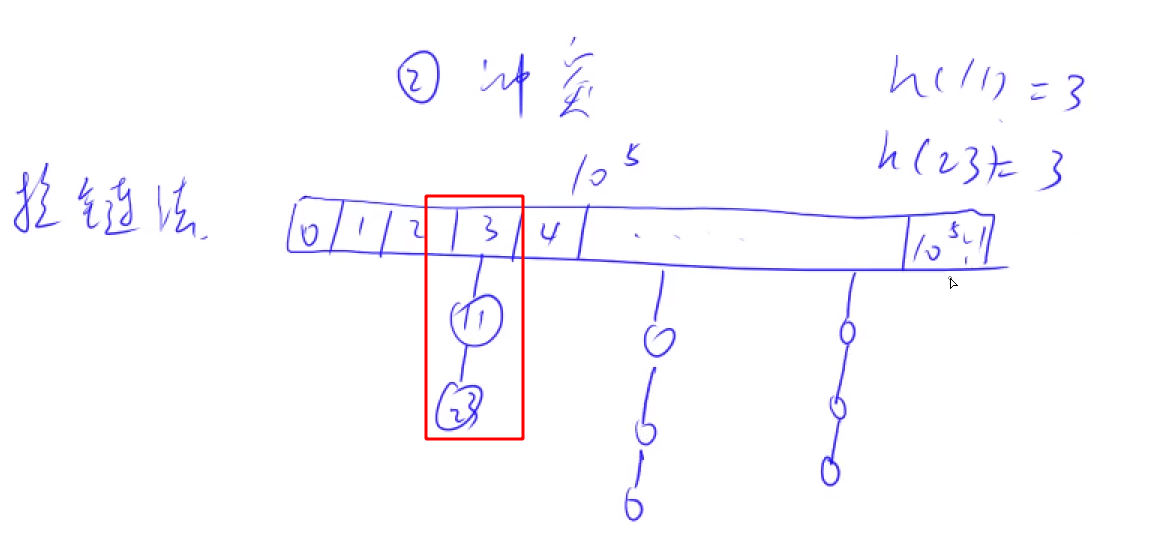 ② 冲突
h(11) = 3
h(23) = 3
10⁵
拉链法
0 1 2 3 4 ..... 10⁵-1
11
23